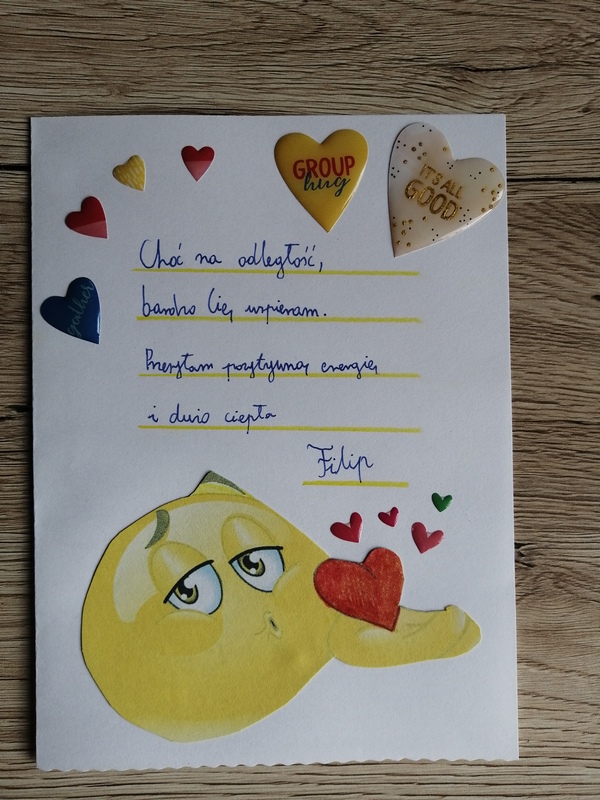 GROUP
hug
IT'S ALL
GOOD
gather
Choć na odległość,
bardzo Cię wspieram.
Przesyłam pozytywną energię
i dużo ciepła
Filip